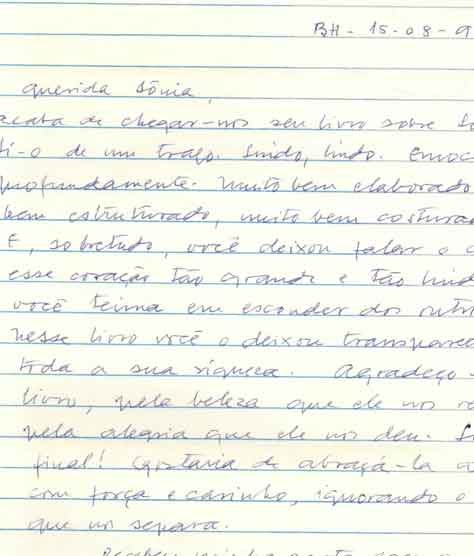 BH - 15-08-9
Querida Sônia,
acaba de chegar-nos seu livro sobre
li-o de um trago. Lindo, lindo. Emoc
profundamente. Muito bem elaborado,
bem estruturado, muito bem costurad
E, sobretudo, você deixou falar o c
esse coração tão grande e tão lind
você teima em esconder dos outro
nesse livro você o deixou transparece
toda a sua riqueza. Agradeço-
livro, pela beleza que ele nos re
pela alegria que ele nos deu.
final! Gostaria de abraçá-la
com força e carinho, ignorando o
que nos separa.